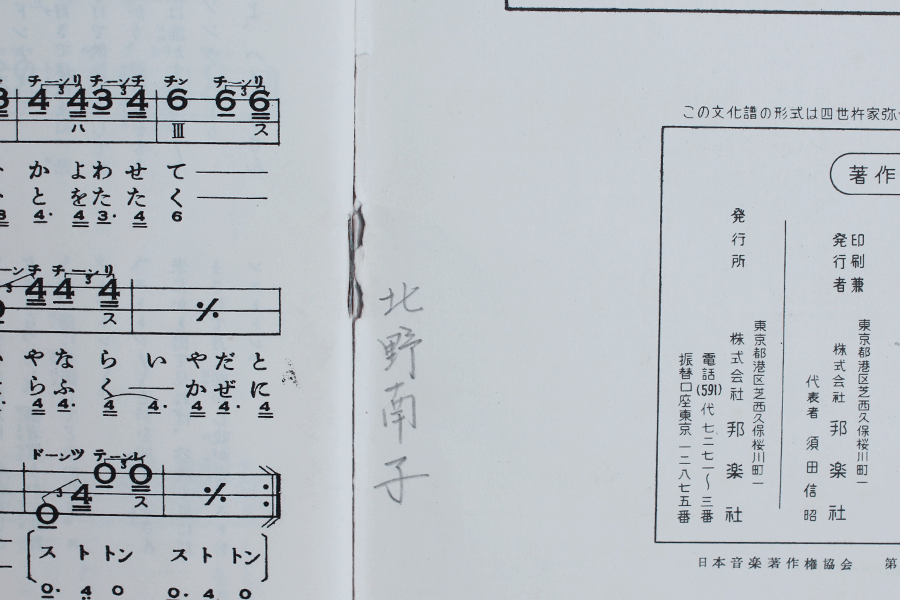 チーンリ チーンチ チン チーンリ
4 4 3 4 6 6 6
ハ Ⅲ ス
か よわ せ て
と をた た く
4· 4 3· 4 6
チ チーンリ
4 4 4
ス
や な ら い や だ と
ら ふ く か ぜ に
4 4· 4 4· 4 4· 4
ドーンツ テーンレ
0 4 0 0
ス
ス ト トン ス ト トン
0· 4 0 0· 4 0
北野南子
この文化譜の形式は四世杵家弥
著作
印刷兼
発行者
東京都港区芝西久保桜川町一
株式会社 邦楽社
代表者 須田信昭
発行所
東京都港区芝西久保桜川町一
株式会社 邦楽社
電話(591)代七二七一〜三番
振替口座東京一二八七五番
日本音楽著作権協会 第